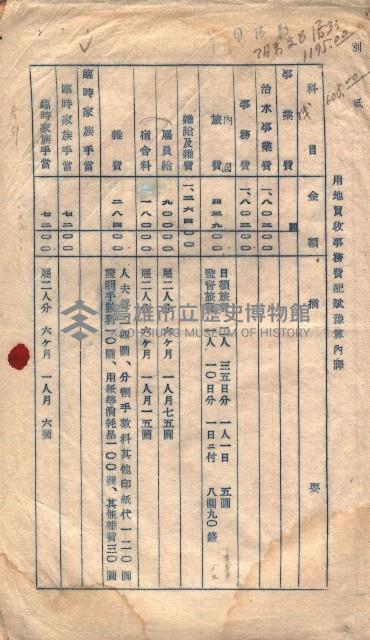 別紙
用地買收事務費記賦豫算內譯
科目 金額 摘要
事業費
治水事業費 一、八〇三〇〇
事務費 一、八〇三〇〇
內國旅費 四三九〇〇
日額旅費 人 三五日分 一人一日 五圓
監督旅費 人 一〇日分 一日ニ付 八圓九〇錢
雜給及雜費 一、三六四〇〇
雇員給 九〇〇〇〇 雇二人 六ヶ月 一人月七五圓
宿舍料 一八〇〇〇 雇二人 六ヶ月 一人月一五圓
雜費 二八四〇〇
人夫 四圓、分割手數料其他印紙代一二〇圓
證明手數料 〇圓、用紙等消耗品一〇〇圓、其他雜費三〇圓
臨時家族手當 七二〇〇
臨時家族手當 七二〇〇 雇二人分 六ヶ月 一人月 六圓
1195.00
605.00
高雄市立歷史博物館
KAOHSIUNG MUSEUM OF HISTORY